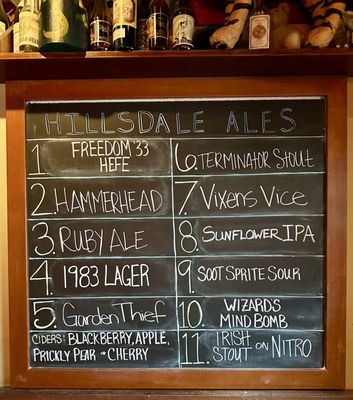 HILLSDALE ALES
1. FREEDOM '33
HEFE
2. HAMMERHEAD
3. RUBY ALE
4. 1983 LAGER
5. Garden Thief
CIDERS: BLACKBERRY, APPLE,
PRICKLY PEAR + CHERRY
6. TERMINATOR STOUT
7. VIXENS VICE
8. SUNFLOWER IPA
9. SOOT SPRITE SOUR
10. WIZARDS
MIND BOMB
11. IRISH
STOUT on NITRO